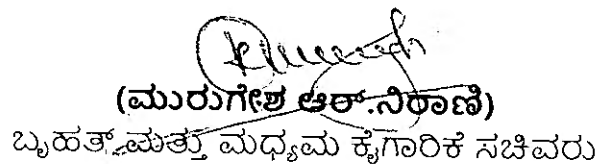 (ಮುರುಗೇಶ ಆರ್.ನಿರಾಣಿ)
ಬೃಹತ್ ಮತ್ತು ಮಧ್ಯಮ ಕೈಗಾರಿಕೆ ಸಚಿವರು